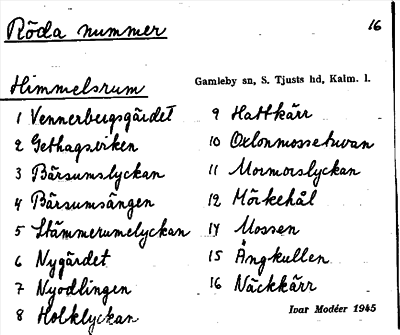 Röda nummer 16
Himmelsrum
Gamleby sn, S. Tjusts hd, Kalm. l.
1 Vennerbergsgärdet
2 Gethagsviken
3 Bärsumslyckan
4 Bärsumsängen
5 Stämmerumelyckan
6 Nygärdet
7 Nyodlingen
8 Holklyckan
9 Hattkärr
10 Oxlonmossetuvan
11 Mormorslyckan
12 Mörkehål
14 Mossen
15 Ängkullen
16 Näckkärr
Ivar Modéer 1945